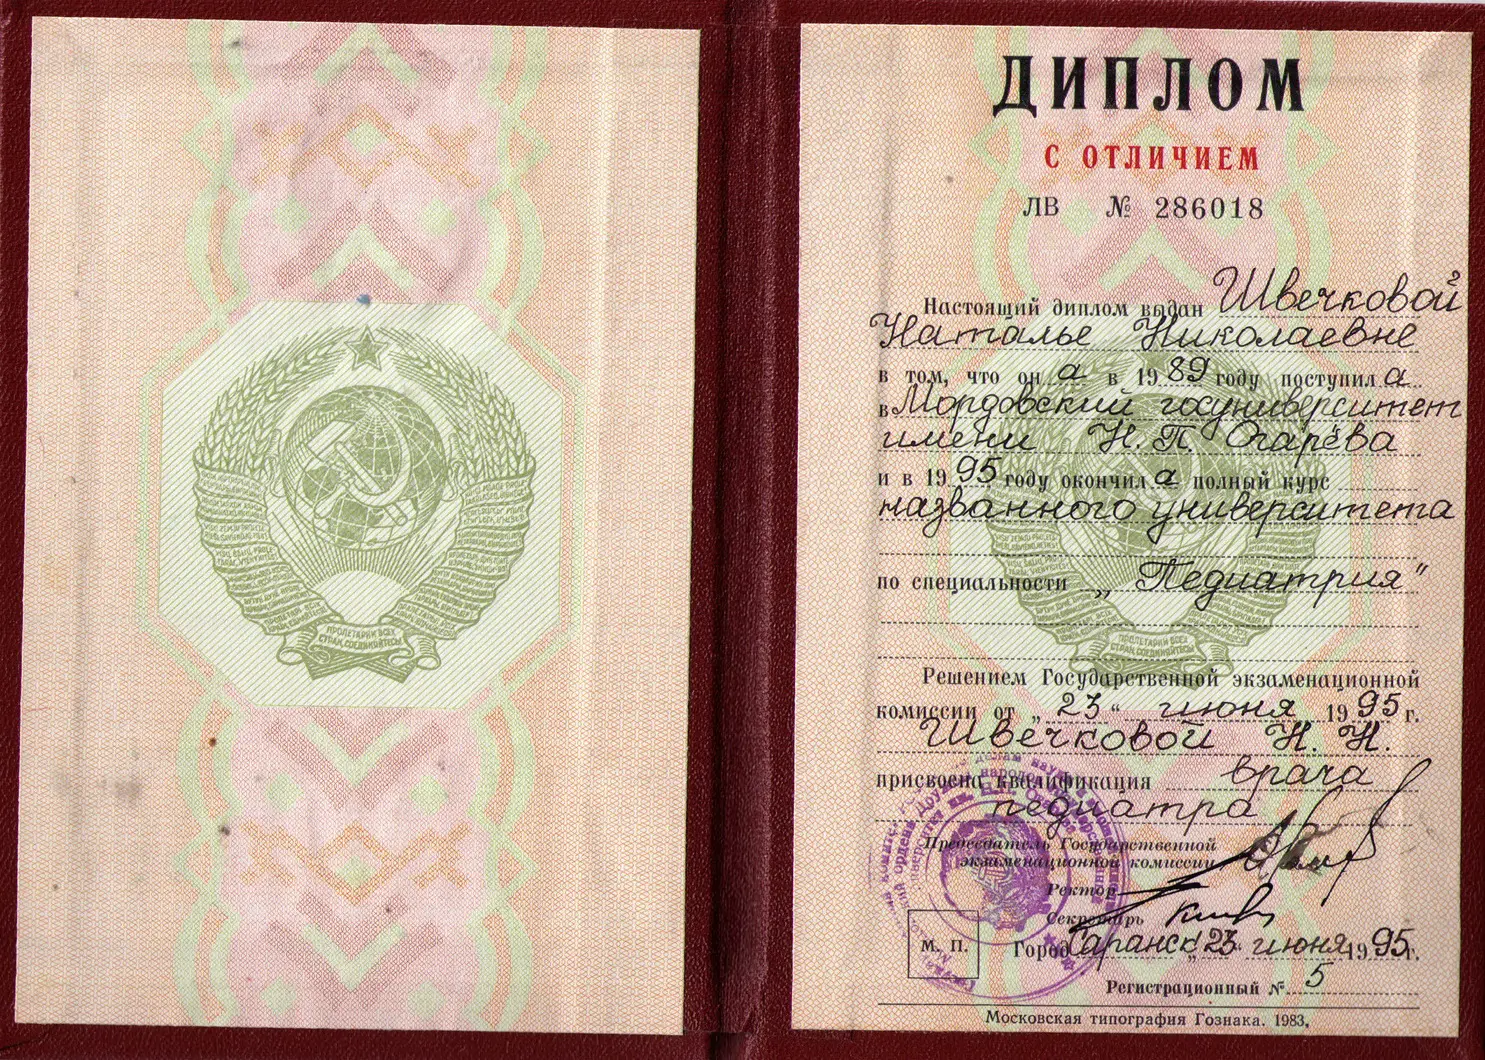 ПРОЛЕТАРИИ ВСЕХ
СТРАН, СОЕДИНЯЙТЕСЬ
ДИПЛОМ
С ОТЛИЧИЕМ
ЛВ № 286018
Настоящий диплом выдан Швечковой
Наталье Николаевне
в том, что он а в 1989 году поступил а
в Мордовский госуниверситет
имени Н. П. Огарёва
и в 1995 году окончил а полный курс
названного университета
по специальности „Педиатрия"
Решением Государственной экзаменационной
комиссии от „23" июня 1995 г.
Швечковой Н. Н.
присвоена квалификация врача
педиатра
Председатель Государственной
экзаменационной комиссии
Ректор
Секретарь
М. П.
Город Саранск „23" июня 1995 г.
Регистрационный № 5
Московская типография Гознака. 1983.